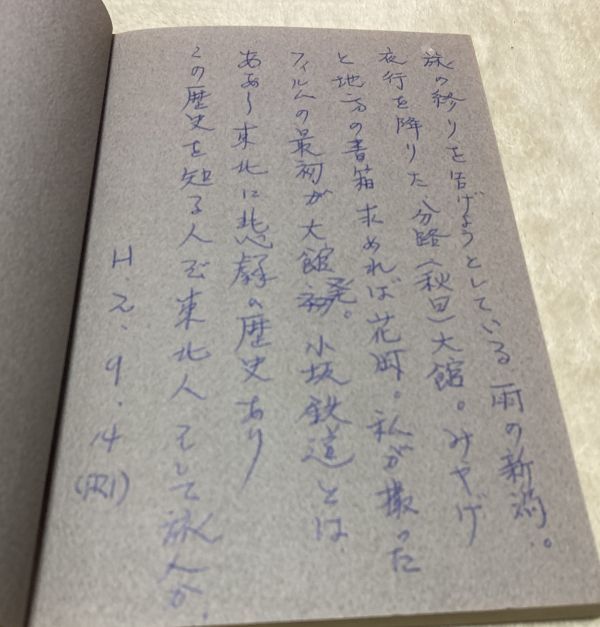 旅の終りを告げようとしている雨の新潟。
夜行を降りた分路(秋田)大館。みやげ
と地方の書籍求めれば花岡。私が撮った
フィルムの最初が大館発。小坂鉄道とは
ああ〜東北に悲劇の歴史あり
この歴史を知る人ぞ東北人そして旅人か.
H.2.9.14
(FRI)